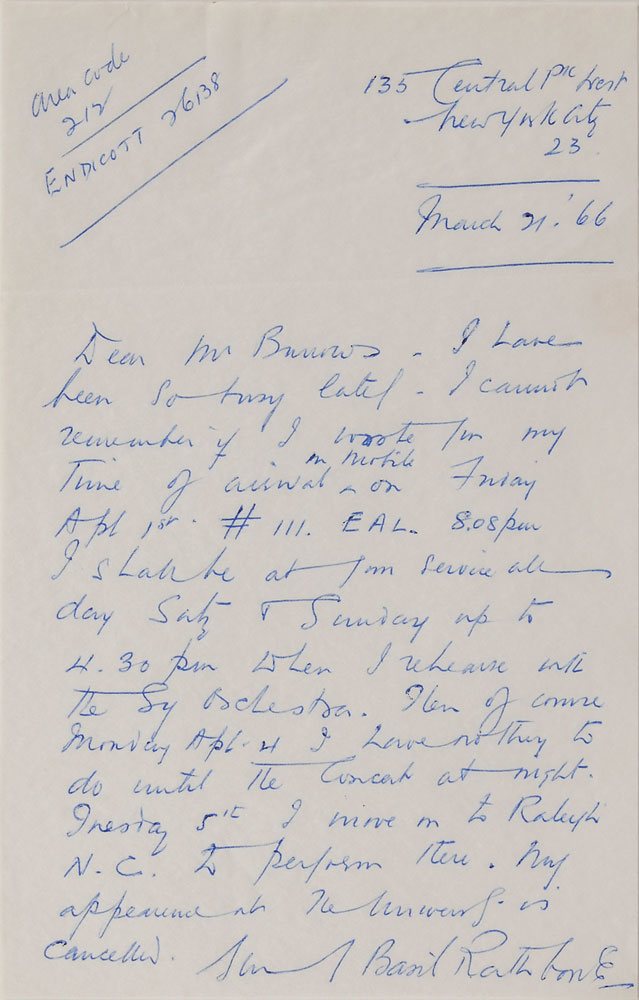 Area Code
212
ENDICOTT 26138
135 Central Pk West
New York City
23.
March 21. '66
Dear Mr Burrows - I have
been so busy lately - I cannot
remember if I wrote you my
time of arrival in Mobile on Friday
Apl 1st. # 111. EAL. 8.08pm
I shall be at your service all
day Saty & Sunday up to
4.30 pm when I rehearse with
the Sy Orchestra. Then of course
Monday Apl. 4 I have nothing to
do until the Concert at night.
Tuesday 5th I move on to Raleigh
N.C. to perform there. My
appearance at the University is
cancelled.
Basil Rathbone